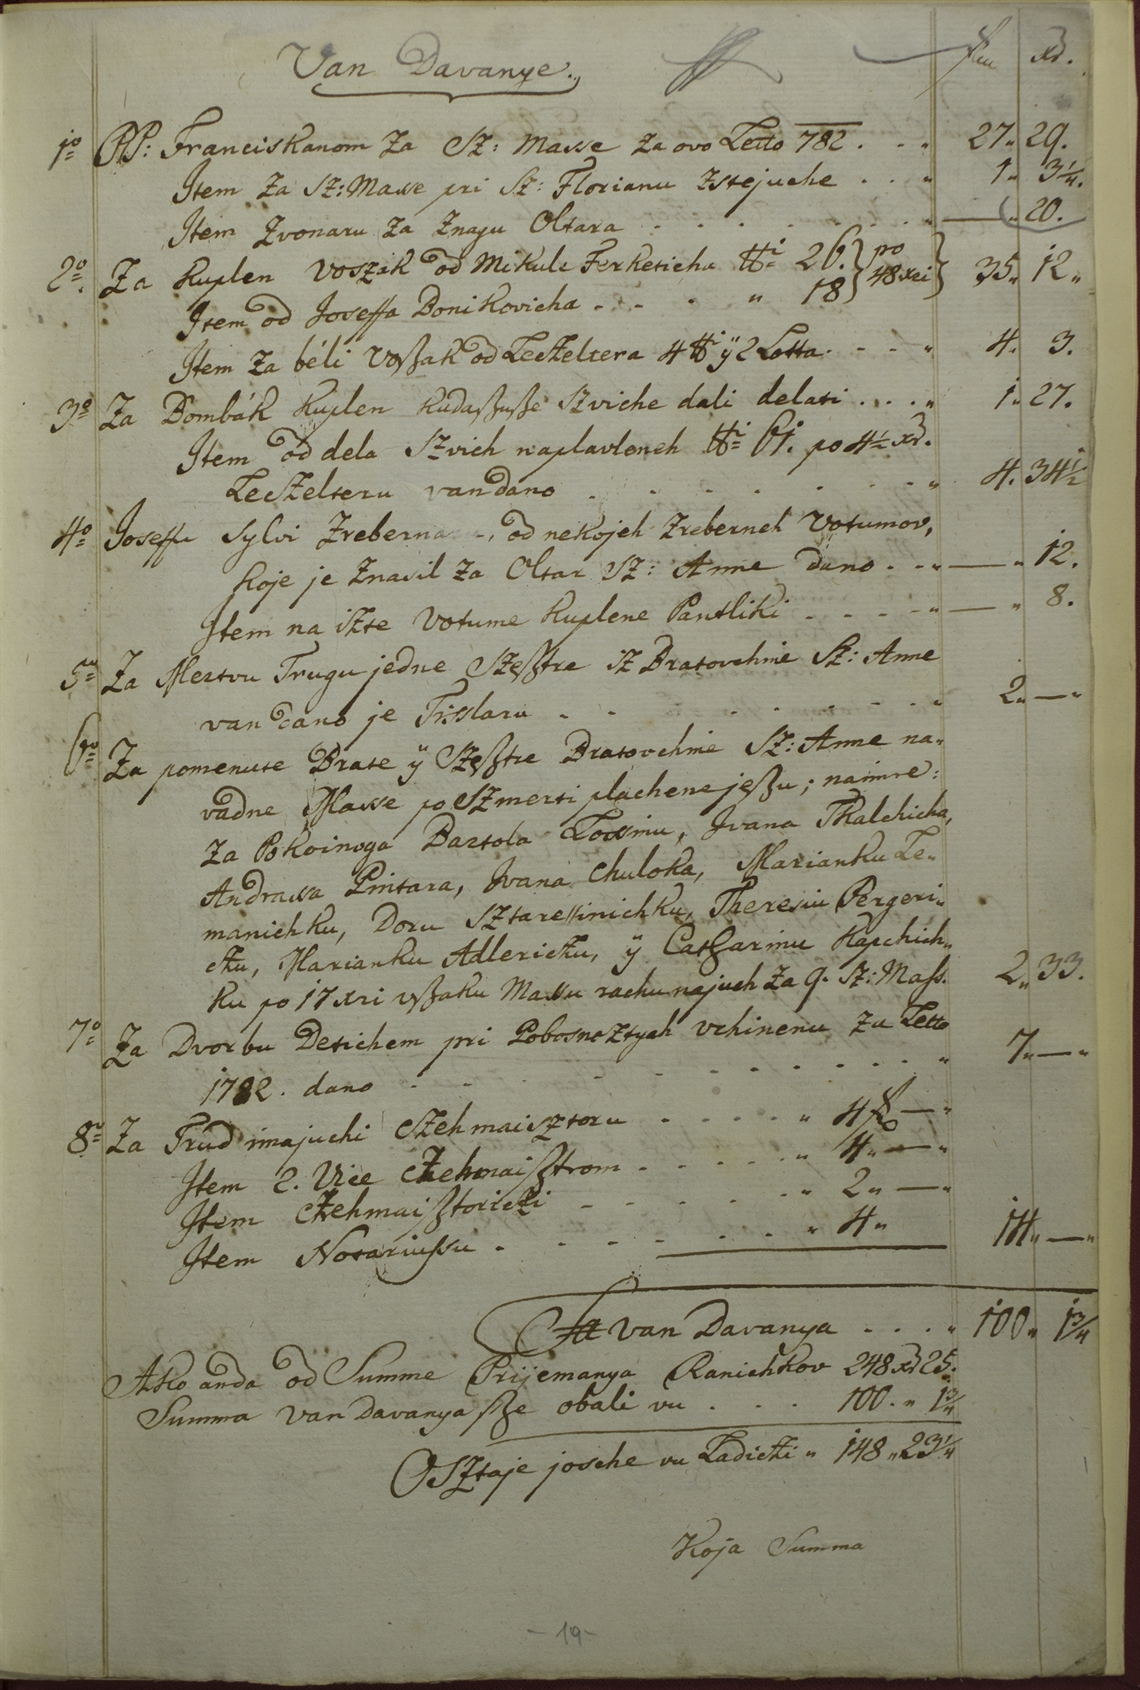 Van Davanye. fln xr.
1o PP: Franciskanom Za Sz: Masse Za ovo Letto 782 . . „ 27„ 29.
Item Za Sz: Masse pri Sz: Florianu Zstejuche . . „ 1„ 3¼.
Item Zvonaru Za Znagu Oltara . . . . . „ — „ 20.
2o Za Kuplen Voszak od Mikule Ferketicha ℔i 26. } po 48 xri } 35„ 12„
Item od Joseffa Donikovicha . . . „ 18
Item Za béli Voßak od Leczeltera 4 ℔i ÿ 2 Lotta . - - „ 4. 3.
3o Za Bombák Kuplen Kudaßuße Szviche dali delati . . . „ 1„ 27.
Item od dela Szvich naplavleneh ℔i 61. po 4½ xr.
Leczelteru van dano . . . . . . „ 4. 34½
4o Joseffu Sylvi od nekojeh Zreberneh Votumov,
koje je Znasil Za Oltar Sz: Anne dano . . „ — „ 12.
Item na iszte Votume Kuplene Pantliki . . . „ — „ 8.
5o Za Mertvu Trugu jedne Szeßtre iz Bratovchine Sz: Anne
van dano je Tisslaru . . . . . . „ 2„ — „
6o Za pomenute Brate ÿ Szeßtre Bratovchine Sz: Anne na„
vadne Masse po Szmerti plachene jeßu; naimre:
Za Pokoinoga Bartola Lossinu, Ivana Tkalchicha,
Andrassa Pintara, Ivana Chuloka, Marianku Le„
manichku, Doru Sztaressinichku, Theresiu Pergeri„
czku, Marianku Adlericzku, ÿ Catharinu Kapchich„
ku po 17 xri vßaku Massu rachunajuch Za 9. Sz: Mass. 2„ 33.
7o Za Dvorbu Detichem pri Pobosnosztyah vchinenu Za Letto
1782. dano . . . . . . „ 7„ — „
8o Za Trud imajuchi Czehmaisztoru . . . . „ 4 f — „
Item 2. Vice Czehmaißtrom . . . . „ 4„ — „
Item Czehmaißtoriczi . . . . „ 2„ — „
Item Notariussu . . . . . „ 4„ 14„ — „
Sa van Davanya . . . „ 100„ 1¾
Ako anda od Summe Prijemanya Ranichkov 248 xr 25.
Summa van Davanya sze obali vu . . . 100. „ 1¾
Osztaje josche vu Ladiczi „ 148„ 23¼
Koja Summa
- 19 -